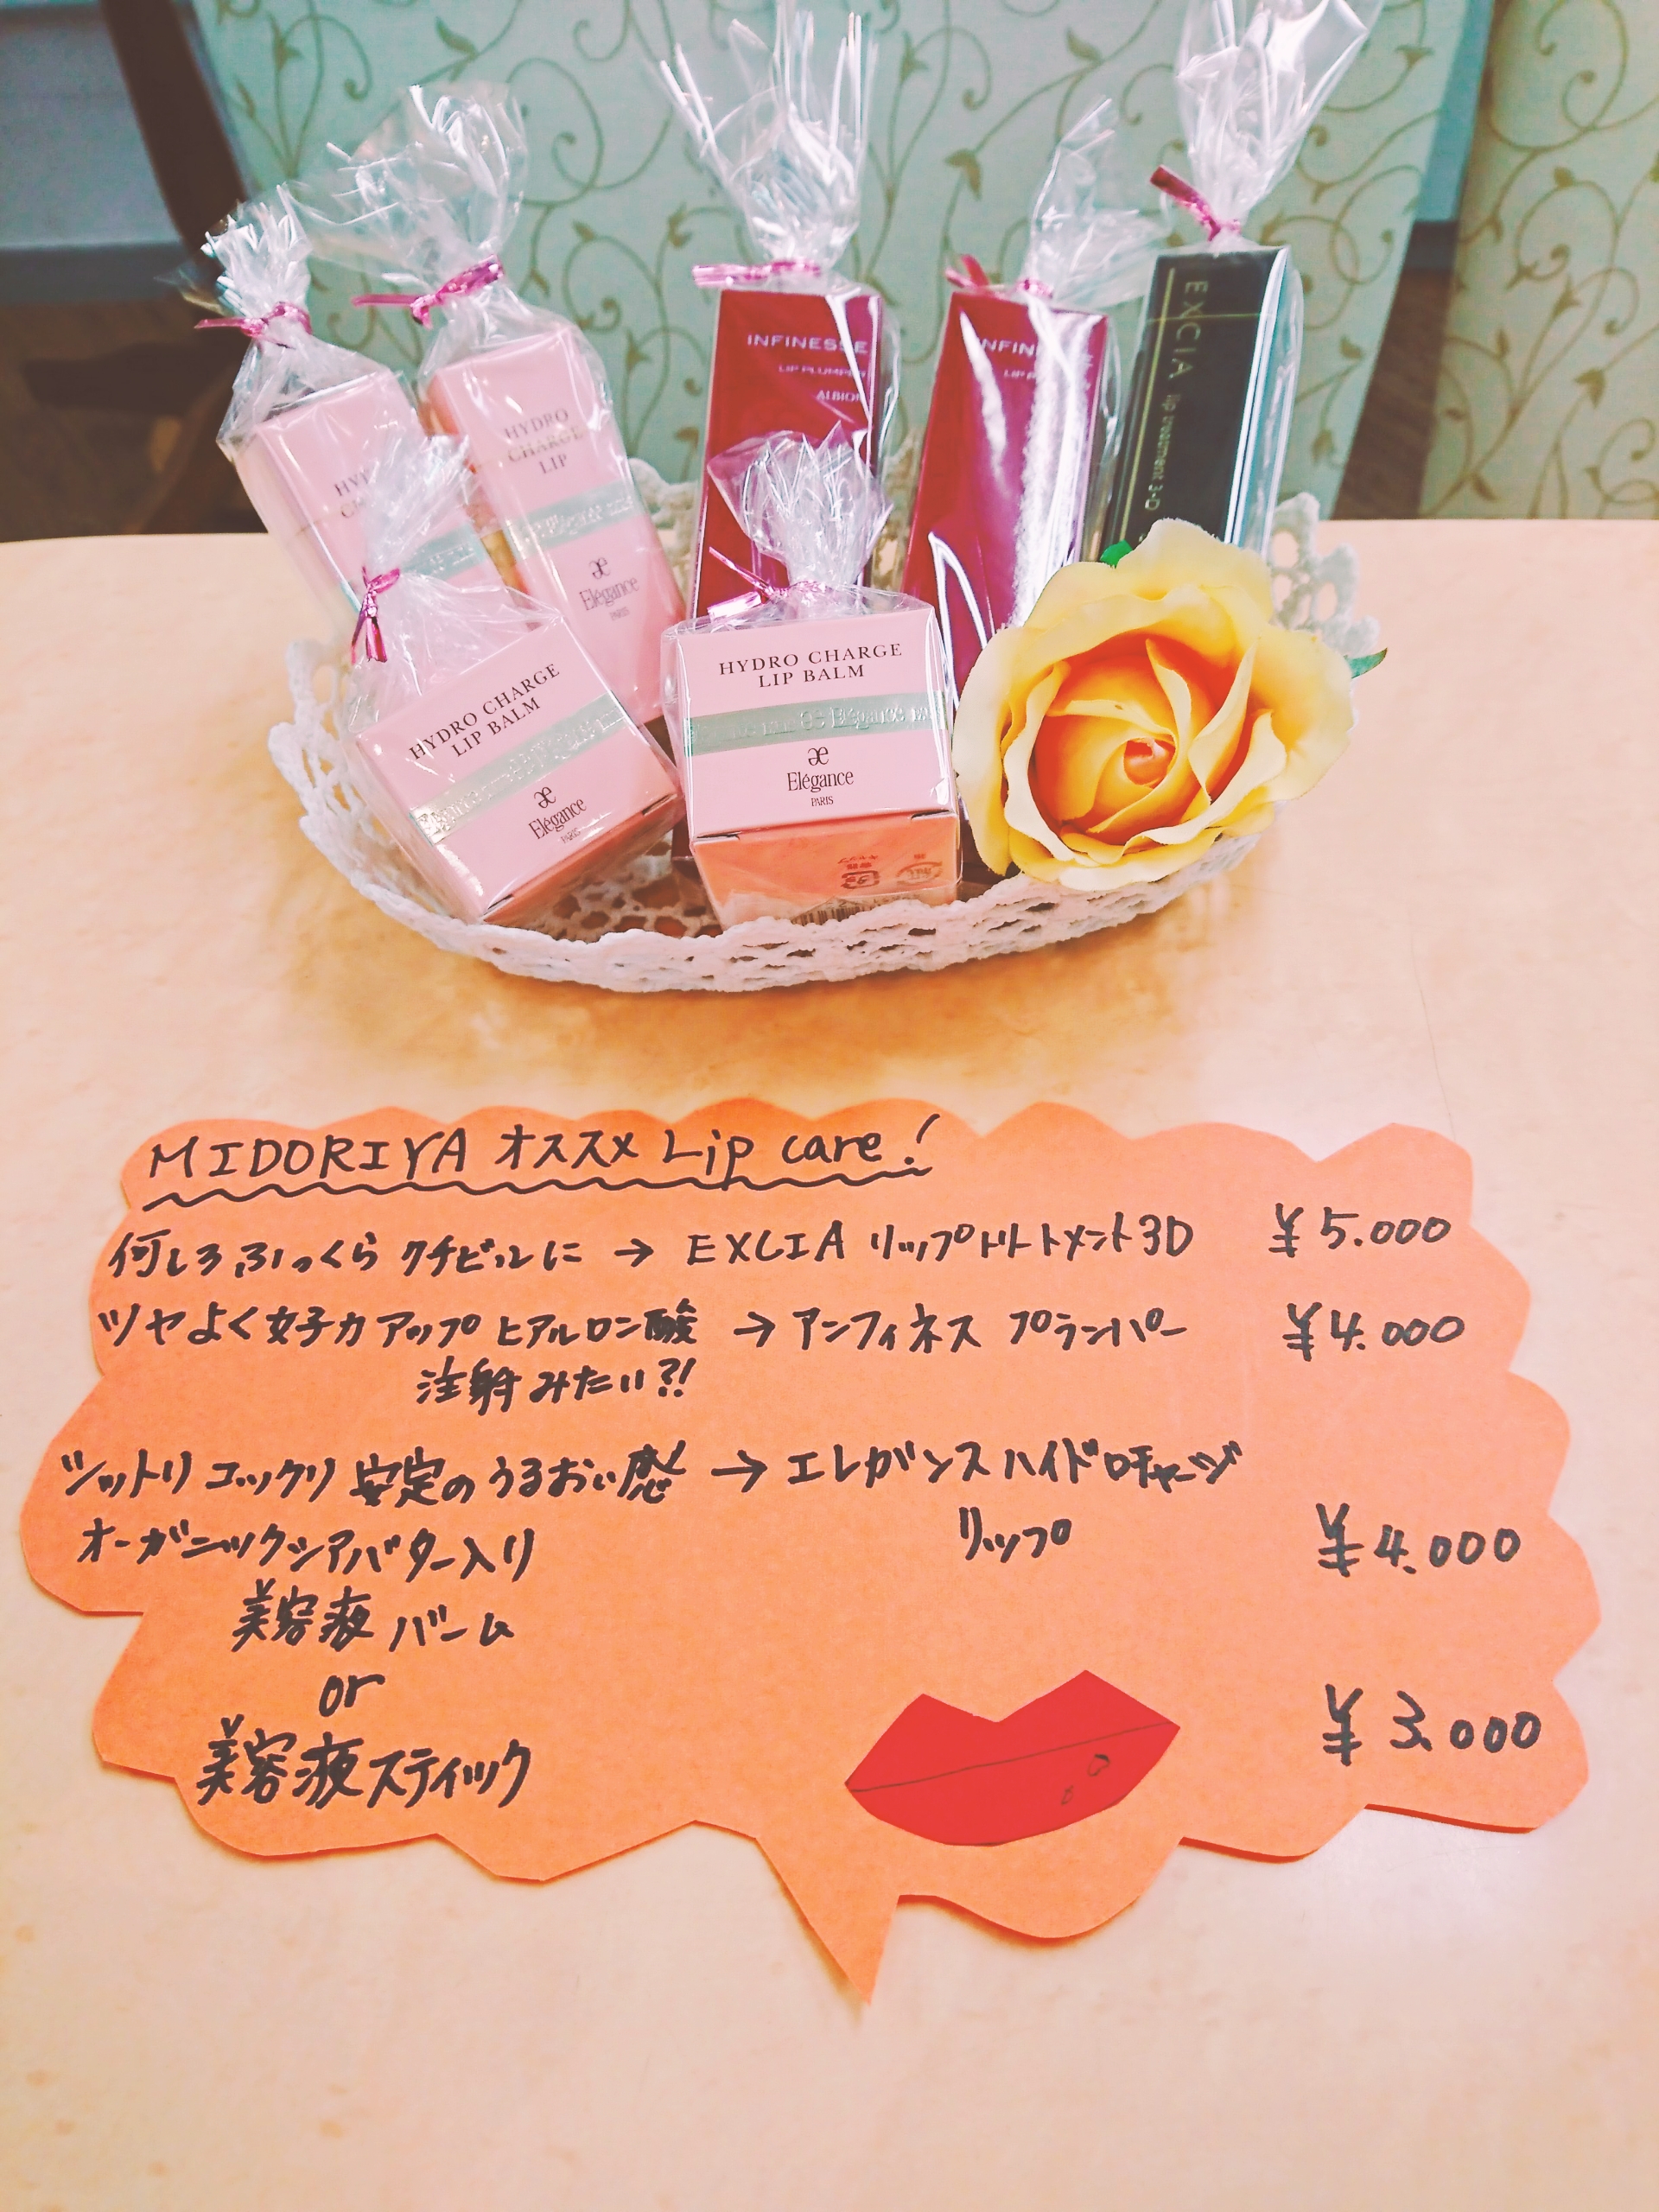 HYDRO
CHARGE
LIP
Elégance
PARIS
INFINESSE
LIP PLUMPER
ALBION
INFIN
LIP P
EXCIA lip treatment 3-D
HYDRO CHARGE
LIP BALM
Elégance
PARIS
HYDRO CHARGE
LIP BALM
Elégance
Elégance
PARIS
MIDORIYA オススメ Lip care!
何しろふっくらクチビルに → EXCIA リップトリートメント3D ¥5.000
ツヤよく女子力アップ ヒアルロン酸 → アンフィネス プランパー ¥4.000
注射みたい?!
シットリ コックリ 安定のうるおい感 → エレガンスハイドロチャージ
オーガニックシアバター入り リップ ¥4.000
美容液バーム
or
美容液スティック ¥3.000